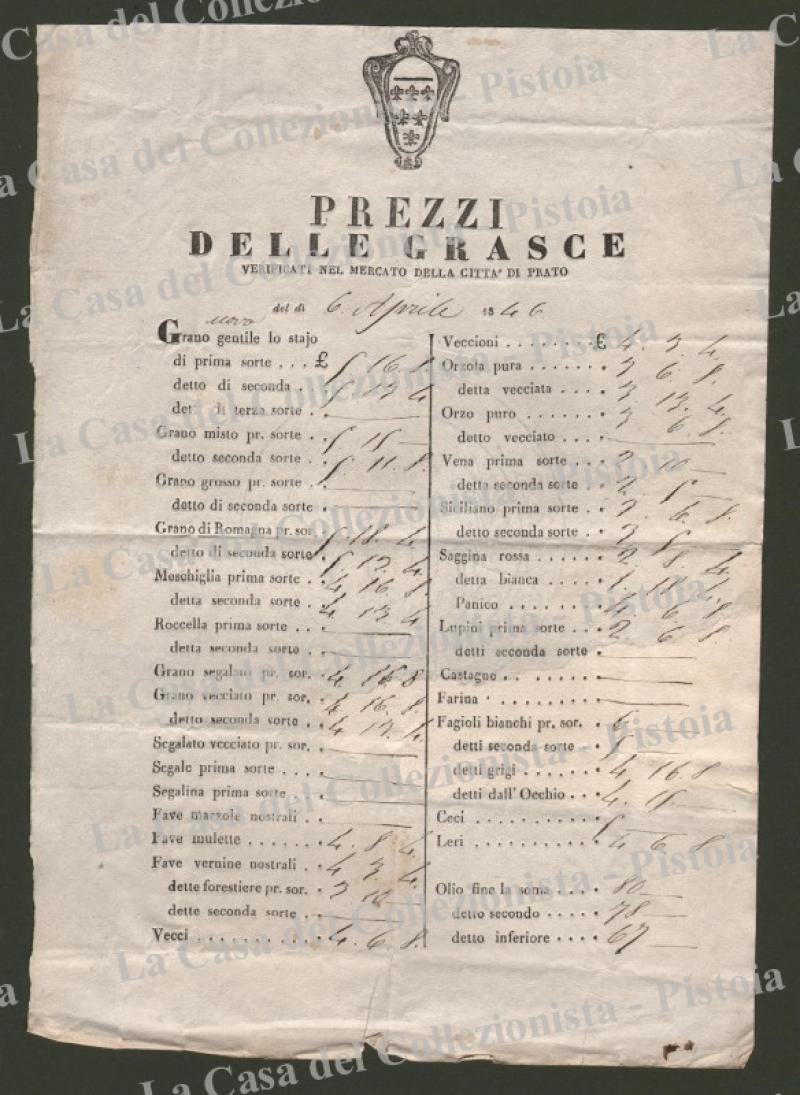 PREZZI
DELLE GRASCE
VERIFICATI NEL MERCATO DELLA CITTA' DI PRATO
del dì 6 Aprile 1846
Grano gentile lo stajo
di prima sorte . . . £ 5 16. 8
detto di seconda . 5 13 4
dett. di terza sorte .
Grano misto pr. sorte . 5 15
detto seconda sorte . . 5. 11. 8.
Grano grosso pr. sorte .
detto di seconda sorte .
Grano di Romagna pr. sor. 5 18. 4
detto di seconda sorte 5. 13. 4
Meschiglia prima sorte . . 4 16. 8
detta seconda sorte . . 4. 13. 4
Roccella prima sorte . . .
detta seconda sorte . .
Grano segalato pr. sor. . 4 16 8
Grano vecciato pr. sor. . 4 16. 8.
detto seconda sorte . . 4 13 4.
Segalato vecciato pr. sor.
Segale prima sorte . . . .
Segalina prima sorte . . .
Fave marzole nostrali . .
Fave mulette . . . . . . . 4. 8 4
Fave vernine nostrali . . 4 3 4
dette forestiere pr. sor. . 3 10
dette seconda sorte . . .
Vecci . . . . . . . . . . 4. 6. 8.
Veccioni . . . . . . . . £ 4 3 4.
Orzola pura . . . . . . . 3 6. 8.
detta vecciata . . . . 3 13. 4
Orzo puro . . . . . . . 3 6. 8.
detto vecciato . . . .
Vena prima sorte . . . 2 10
detta seconda sorte . . 2. 5
Siciliano prima sorte . . . 3 6. 8
detto seconda sorte . . 3. 5
Saggina rossa . . . . . 2 8 4
detta bianca . . . .
Panico . . . . . . .
Lupini prima sorte . . . 2 6 8
detti seconda sorte .
Castagne . . . . . .
Farina .
Fagioli bianchi pr. sor. . 6
detti seconda sorte . . 5
detti grigi . . . . . . 4. 16. 8
detti dall'Occhio . . . 4. 15
Ceci . . . . . . . . . . 5
Leri . . . . . . . . . . 4 6 8
Olio fine la soma . . . . 80
detto secondo . . . . . 78
detto inferiore . . . . 67
La Casa del Collezionista - Pistoia